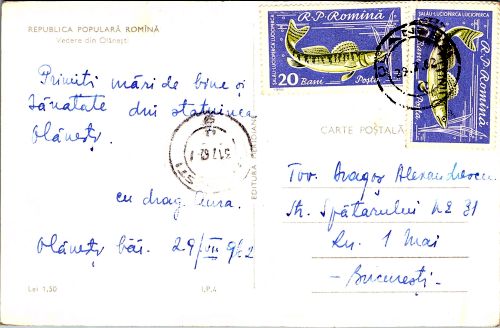 REPUBLICA POPULARĂ ROMÎNĂ
Vedere din Olănești
Primiți urări de bine și
sănătate din stațiunea
Olănești.
cu drag
Olănești băi. 29/VII 962
Lei 1,50
I.P.4
EDITURA MERIDIANE
31.7.62
SALĂU-LUCIOPERCA LUCIOPERCA
R.P.ROMÎNĂ
20 Bani Poșta
SALĂU-LUCIOPERCA LUCIOPERCA
R.P.ROMÎNĂ
20 Bani Poșta
CARTE POȘTALĂ
Tov. Dragoș Alexandrescu
Str. Spătarului No 31
Rn. 1 Mai
- București -